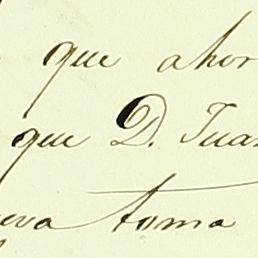 que ahor
que D. Juan
eva toma